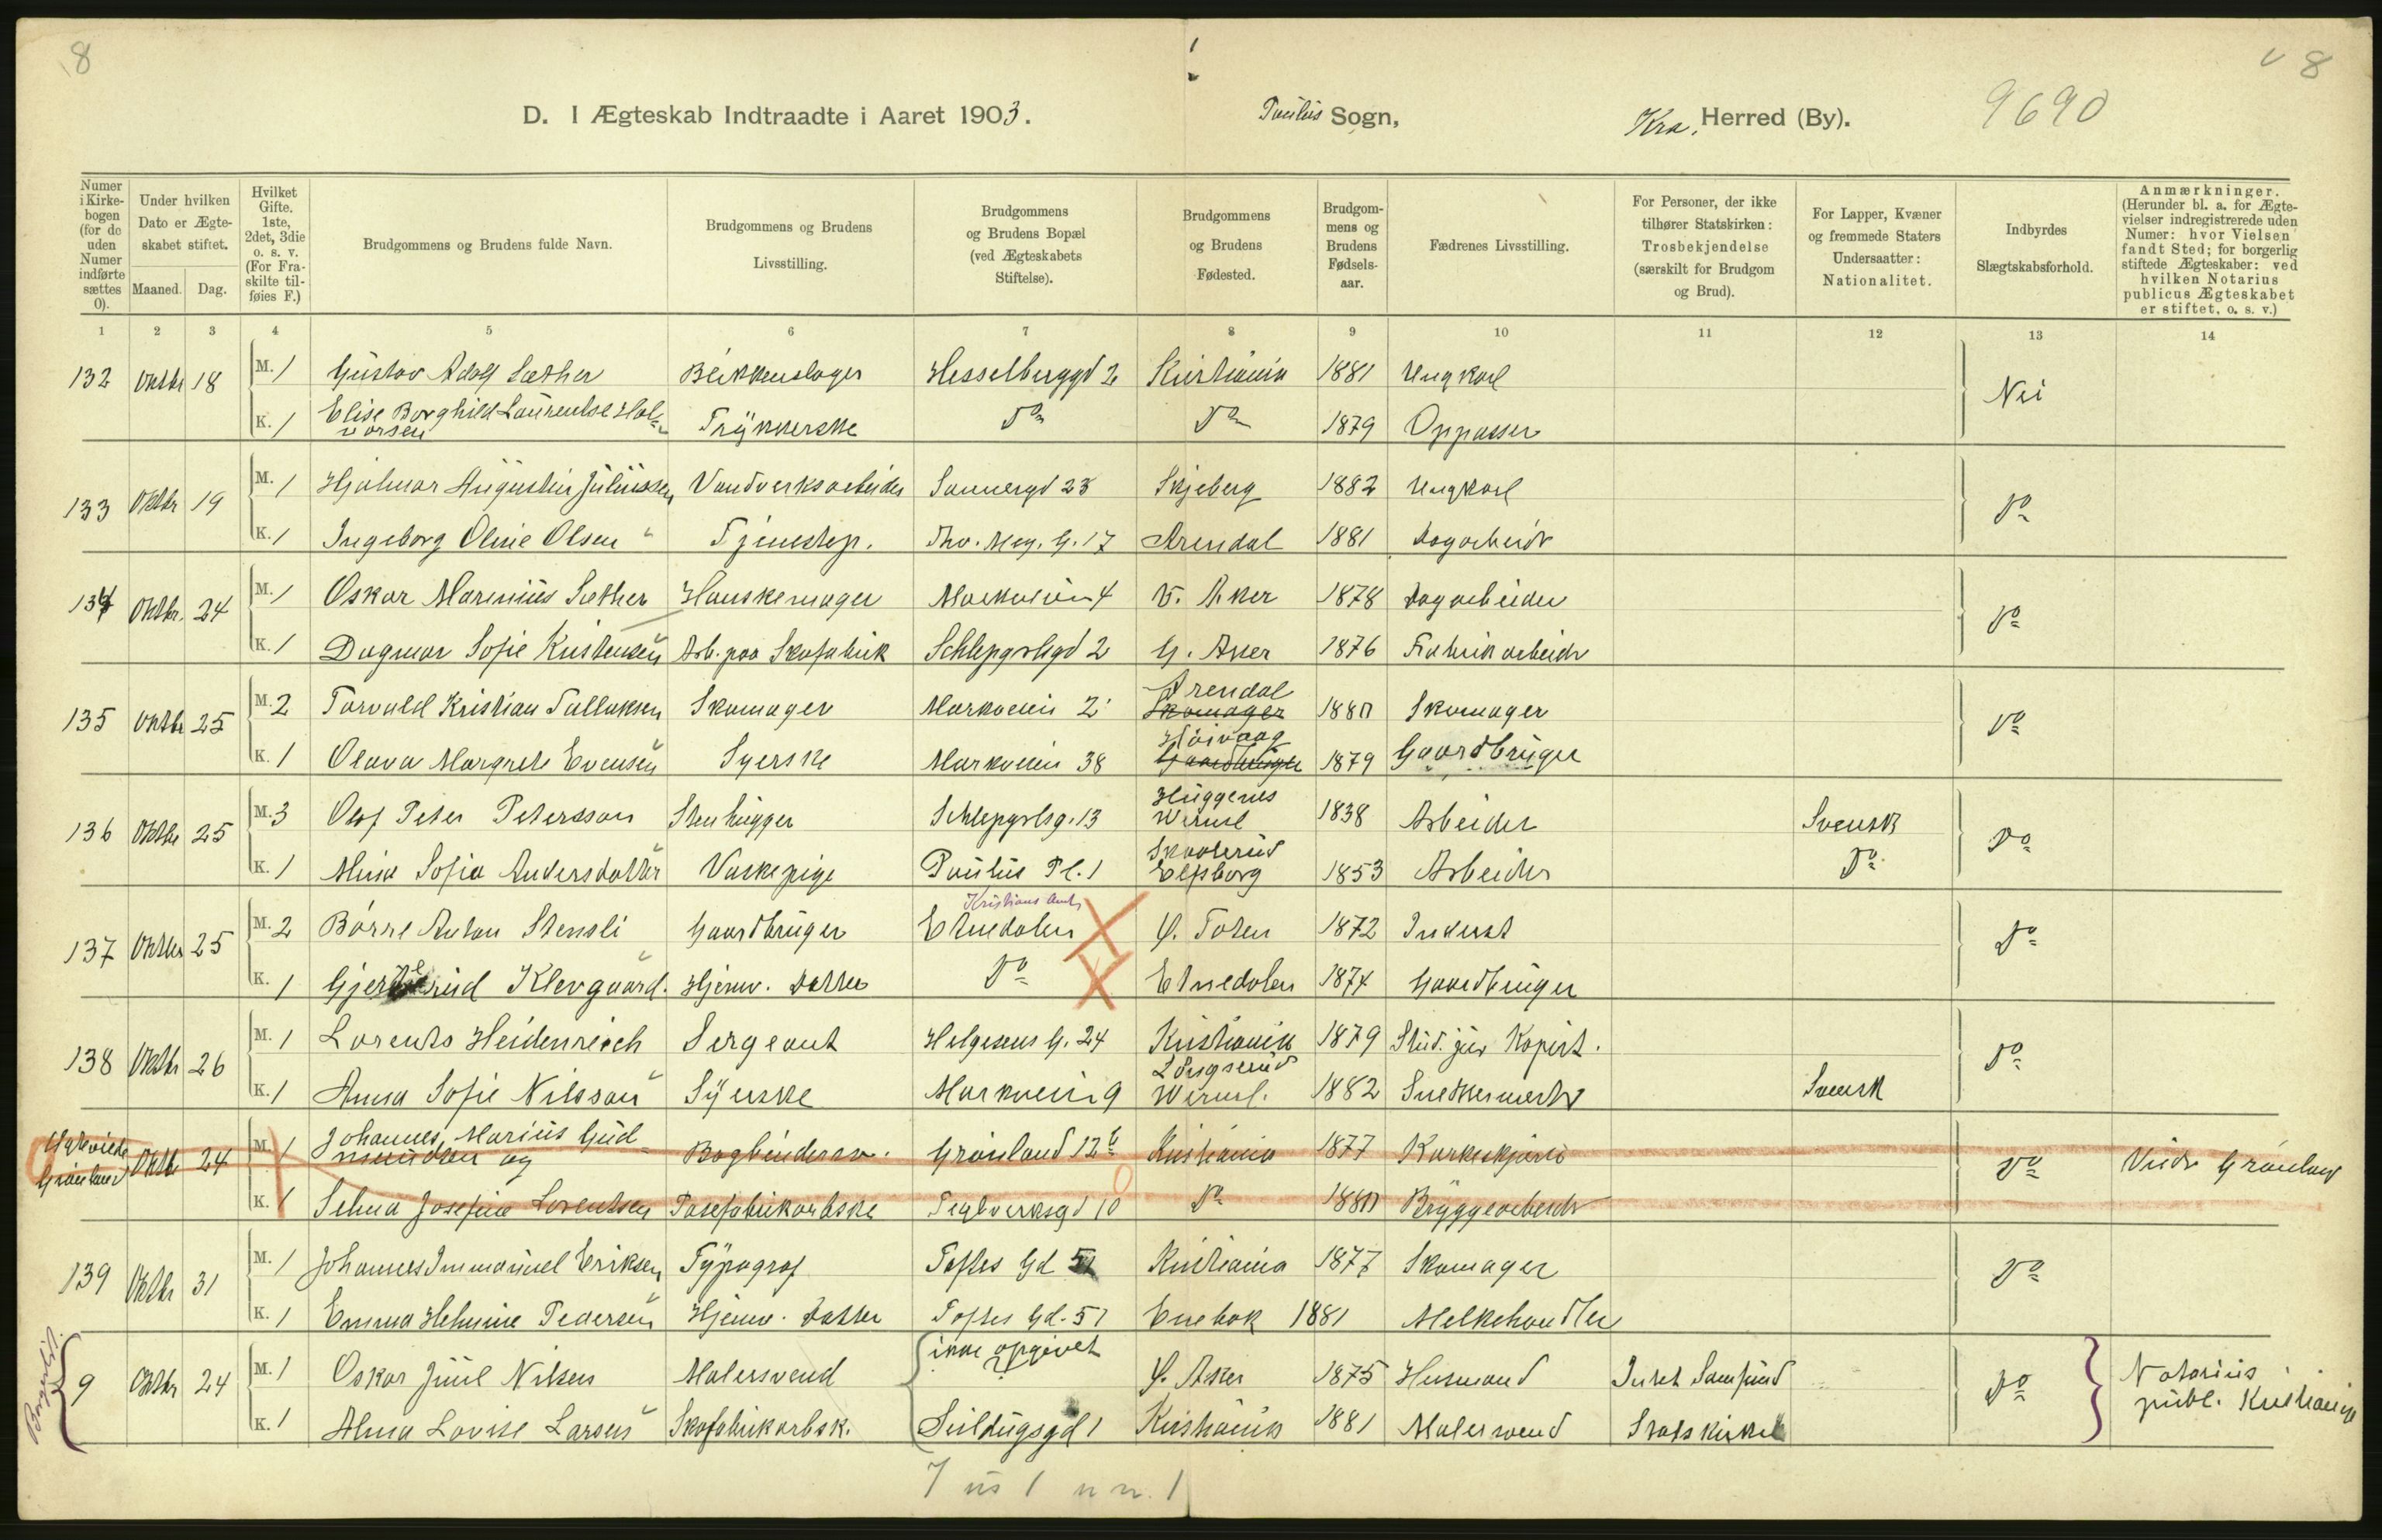 8
8
D. I Ægteskab Indtraadte i Aaret 1903.
Paulus Sogn,
Kra. Herred (By).
9690
Numer i Kirkebogen (for de uden Numer indførte sættes 0).
Under hvilken Dato er Ægteskabet stiftet.
Maaned. Dag.
Hvilket Gifte. 1ste, 2det, 3die o. s. v. (For Fraskilte tilføies F.)
Brudgommens og Brudens fulde Navn.
Brudgommens og Brudens Livsstilling.
Brudgommens og Brudens Bopæl (ved Ægteskabets Stiftelse).
Brudgommens og Brudens Fødested.
Brudgommens og Brudens Fødselsaar.
Fædrenes Livsstilling.
For Personer, der ikke tilhører Statskirken: Trosbekjendelse (særskilt for Brudgom og Brud).
For Lapper, Kvæner og fremmede Staters Undersaatter: Nationalitet.
Indbyrdes Slægtskabsforhold.
Anmærkninger. (Herunder bl. a. for Ægtevielser indregistrerede uden Numer: hvor Vielsen fandt Sted; for borgerlig stiftede Ægteskaber: ved hvilken Notarius publicus Ægteskabet er stiftet, o. s. v.)
1 2 3 4 5 6 7 8 9 10 11 12 13 14
132 Oktbr 18 M. 1 Gustav Adolf Sæther Blikkenslager Hesselberggd 2 Kristiania 1881 Ungkarl Nei
K. 1 Elise Borghild Laurentse Halvorsen Trykkerske Do Do 1879 Oppasser
133 Oktbr 19 M. 1 Hjalmar Augustin Juliussen Vandverksarbeider Sannergd 23 Skjeberg 1882 Ungkarl Do
K. 1 Ingeborg Oline Olsen Tjenestep. Thv. Mey. G. 17 Arendal 1881 Dagarbeidr
134 Oktbr. 24 M. 1 Oskar Marinius Sæther Hanskemager Markveien 4 V. Aker 1878 Dagarbeider Do
K. 1 Dagmar Sofie Kristensen Arb. paa Skofabrik Schlepgrlsgd 2 G. Aker 1876 Fabrikarbeidr
135 Oktbr 25 M. 2 Torvald Kristian Tallaksen Skomager Markveien 2 Arendal Skomager 1880 Skomager Do
K. 1 Olava Margrete Evensen Syerske Markveien 38 Høivaag Gaardbruger 1879 Gaardbruger
136 Oktbr 25 M. 3 Olof Peter Petersson Stenhugger Schlepgrlsg. 13 Huggenes Werml 1838 Arbeider Svensk Do
K. 1 Mina Sofia Andersdatter Vaskepige Paulus Pl. 1 Elfsborg 1853 Arbeider Do
Kristians Amt
137 Oktbr 25 M. 2 Børre Anton Stensli Gaardbruger Etnedalen Ø. Toten 1872 Inderst Do
K. 1 Gjerterud Klevgaard. Hjemv. Datter Do Etnedalen 1874 Gaardbruger
138 Oktbr 26 M. 1 Lorents Heidenreich Sergeant Helgesens G. 24 Kristiania 1879 Stud. jur Kopist. Do
K. 1 Anna Sofie Nilsson Syerske Markveien 9 Werml. 1882 Snedkermestr Svensk
Grønland Oktb 24 M. 1 Johannes Marius Gudmundsen og Bogbindersv. Grønland 12 b Kristiania 1877 Do Viede Grønland
K. 1 Selma Josefine Lorentsen Posefabrikarbske Teglverksgd 10 Do 1880 Bryggearbeidr
139 Oktbr 31 M. 1 Johannes Immanuel Eriksen Typograf Toftes Gd 51 Kristiania 1877 Skomager Do
K. 1 Emma Helmine Pedersen Hjemv. Datter Toftes Gd. 51 Enebak 1881 Melkehandler
Borgerlit. 9 Oktbr 24 M. 1 Oskar Juul Nilsen Malersvend ikke opgivet Ø. Aker 1875 Husmand Intet Samfund Do Notarius publ. Kristiania
K. 1 Alma Lovise Larsen Skofabrikarbsk. Seildugsgd 1 Kristiania 1881 Malersvend Statskirke
7 us 1 u n. 1